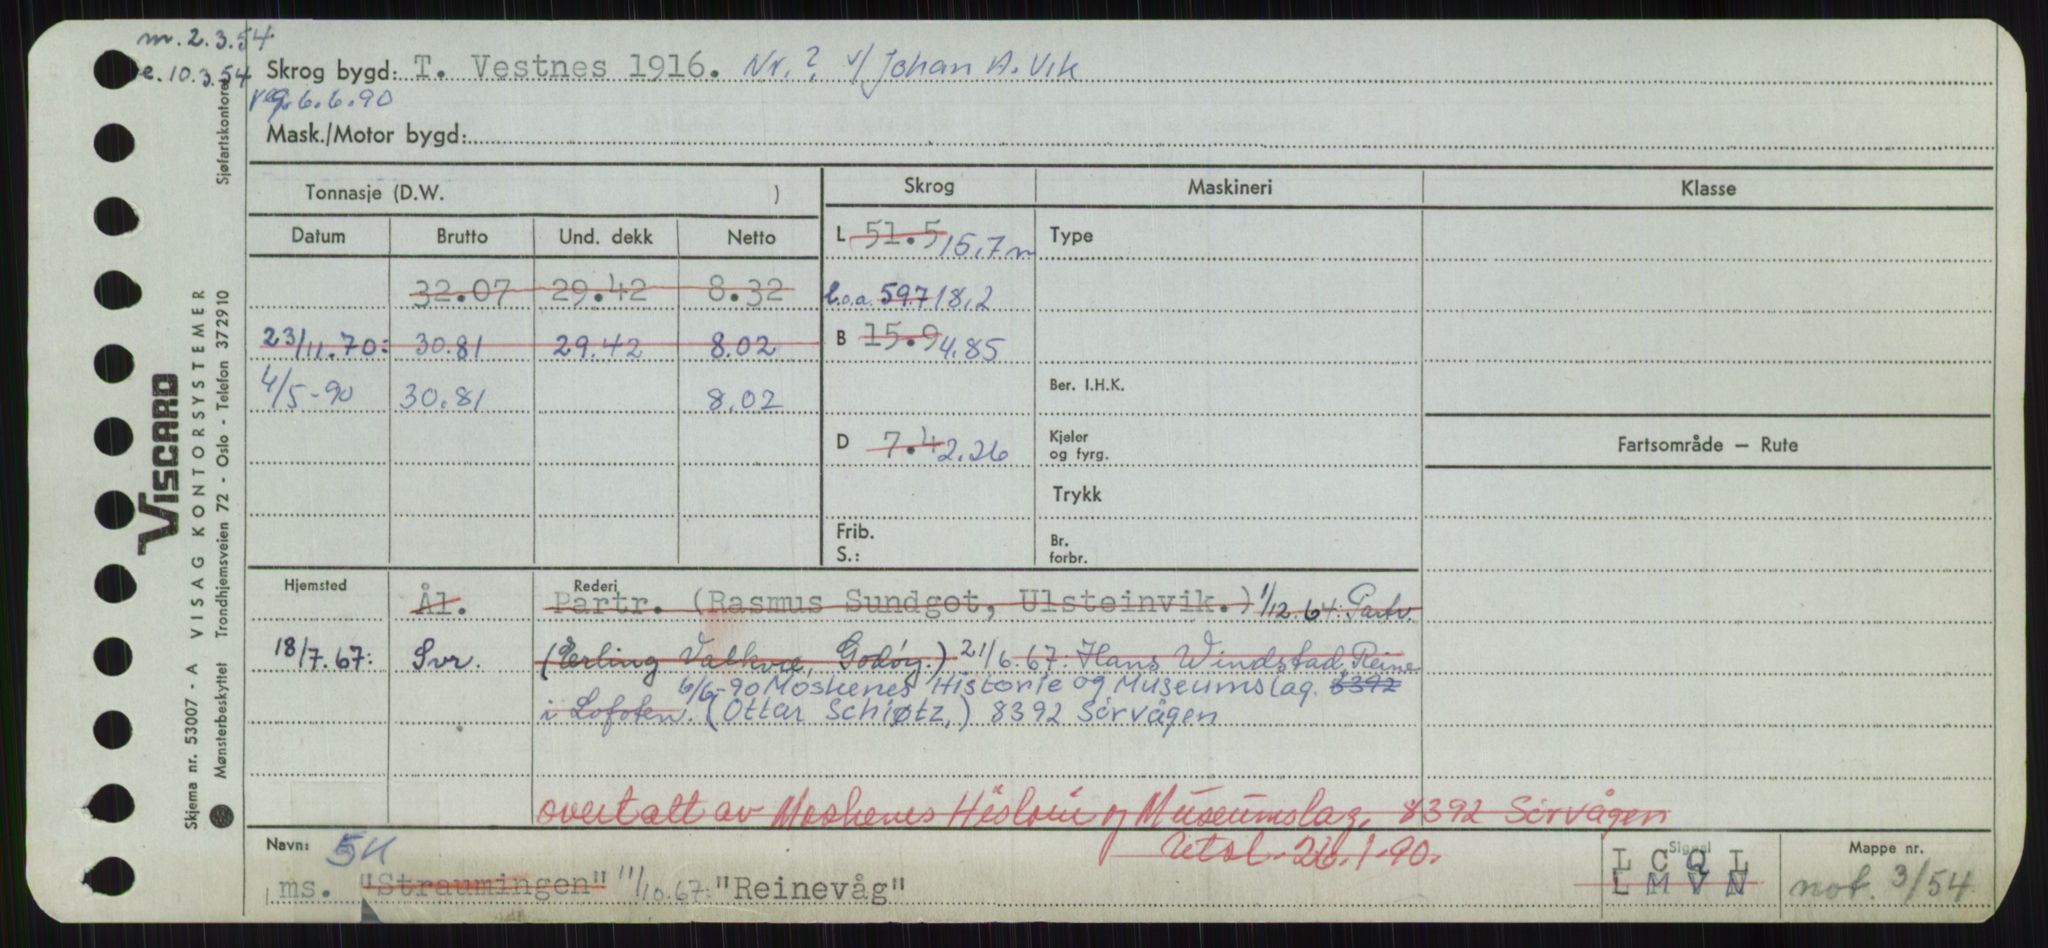 m. 2.3.54
e. 10.3.54
Skrog bygd: T. Vestnes 1916. Nr. ? v/ Johan A. Vik
reg. 6.6.90
Mask./Motor bygd:
Tonnasje (D.W. )
Skrog
Maskineri
Klasse
Datum Brutto Und. dekk Netto
L 51.5 15,7 m
Type
32.07 29.42 8.32
l.o.a. 59.7 18,2
23/11.70: 30.81 29.42 8.02
B 15.9 4.85
4/5-90 30.81 8.02
Ber. I.H.K.
D 7.4 2.26
Kjeler
og fyrg.
Fartsområde — Rute
Trykk
Frib.
S.:
Br.
forbr.
Hjemsted
Rederi
Ål. Partr. (Rasmus Sundgot, Ulsteinvik.) 1/12.64: Partr.
18/7.67: Svr. (Erling Valkvæ, Godøy.) 21/6.67: Hans Windstad, Reine
6/6-90 Moskenes Historie og Museumslag. 8392
i Lofoten. (Ottar Schiøtz,) 8392 Sørvågen
overtatt av Moskenes Historie og Museumslag, 8392 Sørvågen
Utsl. 26.1.90.
Navn: 5H
ms. "Straumingen" 11/10.67: "Reinevåg"
Signal
L C Q L
L M V N
Mappe nr.
not. 3/54
Skjema nr. 53007 - A VISAG KONTORSYSTEMER
VISCARD
Mønsterbeskyttet Trondhjemsveien 72 - Oslo - Telefon 372910 Sjøfartskontoret